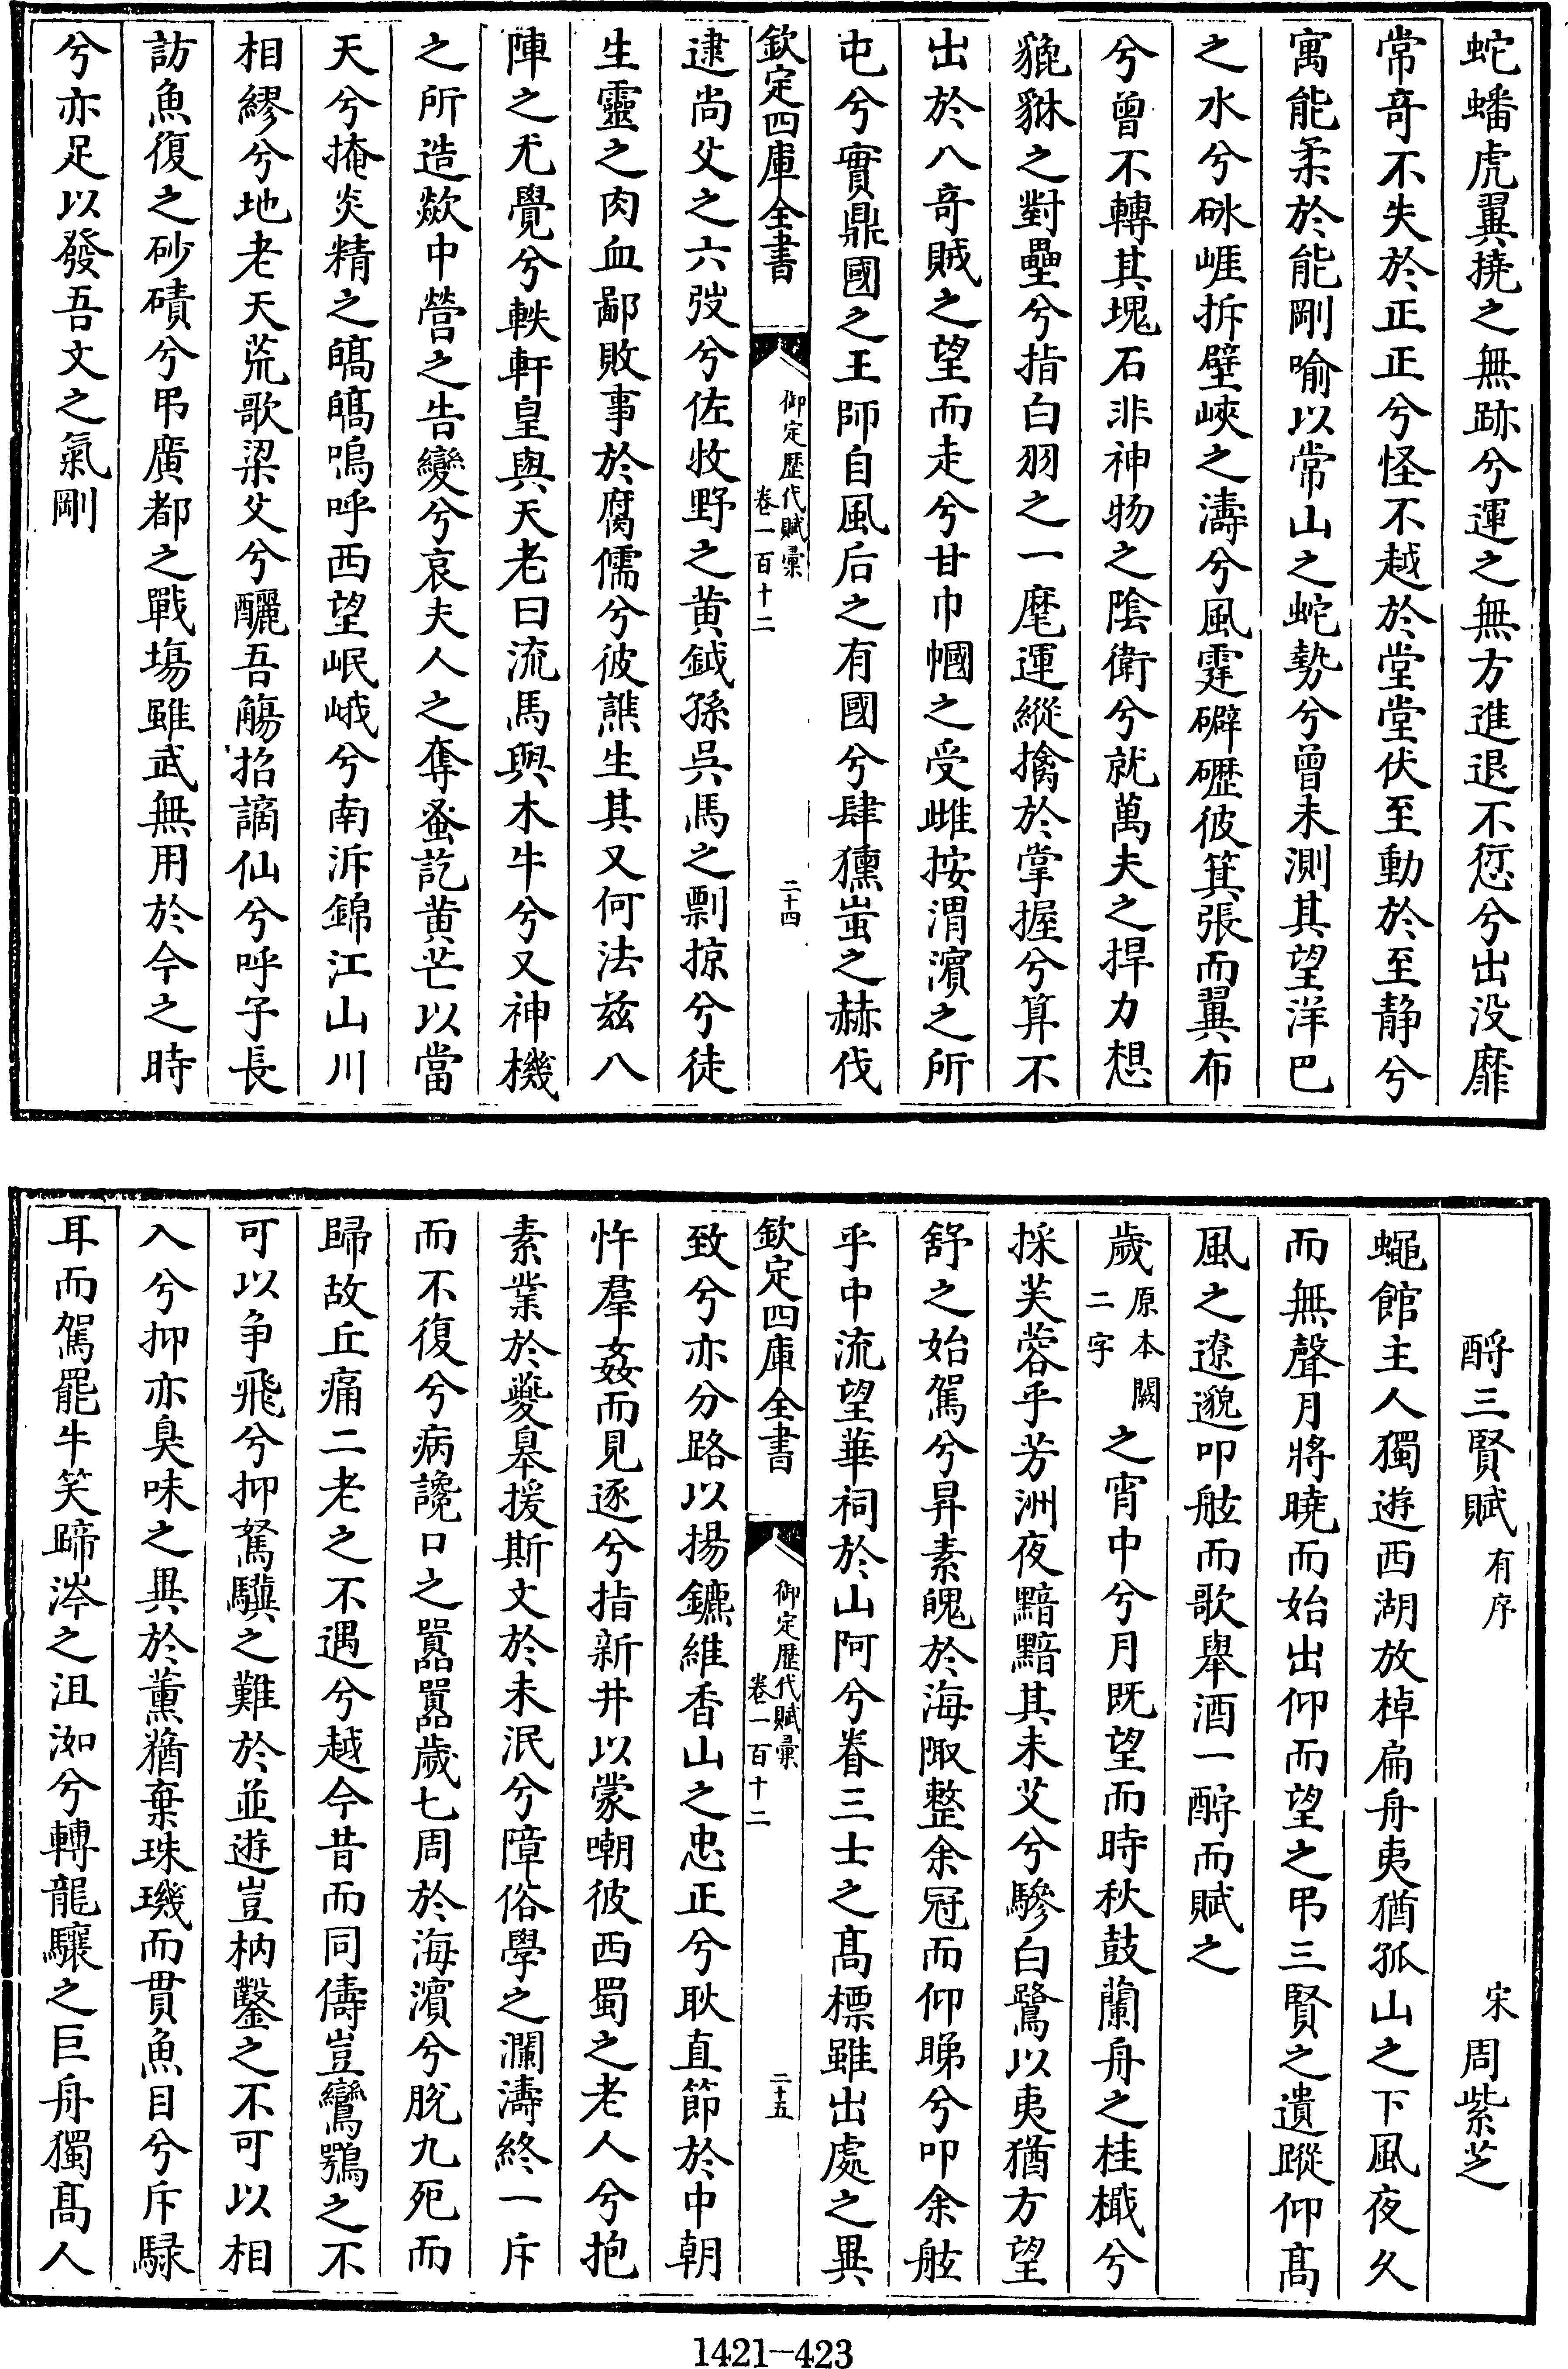 蛇蟠虎翼撓之無跡兮運之無方進退不愆兮出没靡
常奇不失於正正兮怪不越於堂堂伏至動於至静兮
寓能柔於能剛喻以常山之蛇勢兮曾未測其望洋巴
之水兮砯崕拆壁峽之濤兮風霆礔礰彼箕張而翼布
兮曾不轉其塊石非神物之陰衛兮就萬夫之捍力想
貔貅之對壘兮指白羽之一麾運縱擒於掌握兮算不
出於八奇賊之望而走兮甘巾幗之受雌按渭濱之所
屯兮實鼎國之王師自風后之有國兮肆獯蚩之赫伐
欽定四庫全書
御定歷代賦彙
卷一百十二
二十四
逮尚父之六弢兮佐牧野之黄鉞孫吳馬之剽掠兮徒
生靈之肉血鄙敗事於腐儒兮彼譙生其又何法兹八
陣之尤覺兮軼軒皇與天老曰流馬與木牛兮又神機
之所造歘中營之告變兮哀夫人之奪蚤訖黄芒以當
天兮掩炎精之皜皜嗚呼西望岷峨兮南泝錦江山川
相繆兮地老天荒歌梁父兮釃吾觴招謫仙兮呼子長
訪魚復之砂磧兮弔廣都之戰塲雖武無用於今之時
兮亦足以發吾文之氣剛
酹三賢賦 有序 宋 周紫芝
蠅館主人獨遊西湖放棹扁舟夷猶孤山之下風夜久
而無聲月將曉而始出仰而望之弔三賢之遺蹤仰髙
風之遼邈叩舷而歌舉酒一酹而賦之
歲原本闕二字之宵中兮月既望而時秋鼓蘭舟之桂檝兮
採芙蓉乎芳洲夜黯黯其未艾兮驂白鷺以夷猶方望
舒之始駕兮昇素魄於海陬整余冠而仰睇兮叩余舷
乎中流望華祠於山阿兮眷三士之髙標雖出處之異
欽定四庫全書
御定歷代賦彙
卷一百十二
二十五
致兮亦分路以揚鑣維香山之忠正兮耿直節於中朝
忤羣姦而見逐兮指新井以蒙嘲彼西蜀之老人兮抱
素業於夔臯援斯文於未泯兮障俗學之瀾濤終一斥
而不復兮病讒口之嚚嚚歲七周於海濱兮脱九死而
歸故丘痛二老之不遇兮越今昔而同儔豈鸞鶚之不
可以争飛兮抑駑驥之難於並遊豈枘鑿之不可以相
入兮抑亦臭味之異於薰蕕棄珠璣而貫魚目兮斥騄
耳而駕罷牛笑蹄涔之沮洳兮轉龍驤之巨舟獨髙人
1421-423